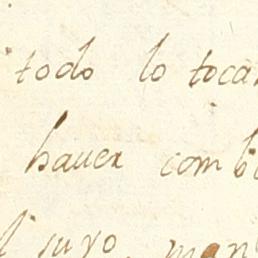 todo lo toca
haver com
suyo, man